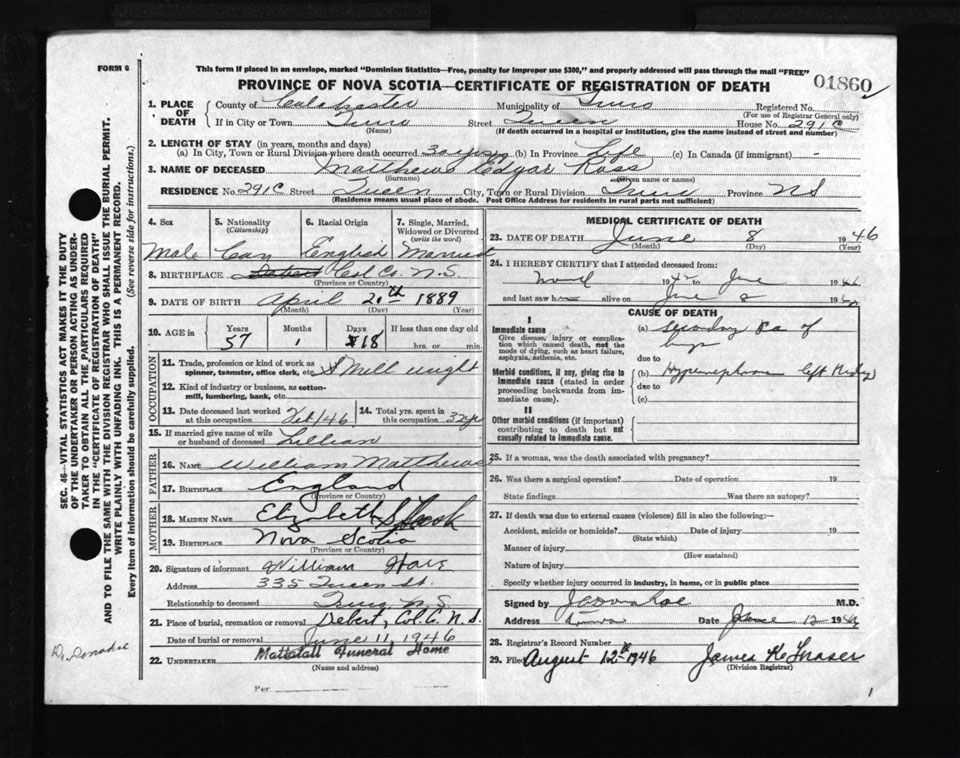 FORM 6
This form if placed in an envelope, marked "Dominion Statistics—Free, penalty for improper use $300," and properly addressed will pass through the mail "FREE"
PROVINCE OF NOVA SCOTIA—CERTIFICATE OF REGISTRATION OF DEATH
01860
1. PLACE OF DEATH
County of Colchester Municipality of Truro Registered No.
(For use of Registrar General only)
If in City or Town Truro Street Queen House No. 291C
(Name) (If death occurred in a hospital or institution, give the name instead of street and number)
2. LENGTH OF STAY (in years, months and days)
(a) In City, Town or Rural Division where death occurred 30 yrs (b) In Province Life (c) In Canada (if immigrant) -
3. NAME OF DECEASED Matthews Edgar Ross
(Surname) (Given name or names)
RESIDENCE No. 291C Street Queen City, Town or Rural Division Truro Province NS
(Residence means usual place of abode. Post Office Address for residents in rural parts not sufficient)
4. Sex
Male
5. Nationality
(Citizenship)
Can
6. Racial Origin
English
7. Single, Married, Widowed or Divorced
(write the word)
Married
8. BIRTHPLACE Debert Col Co. N.S.
(Province or Country)
9. DATE OF BIRTH April 20th 1889
(Month) (Day) (Year)
10. AGE in
Years Months Days If less than one day old
57 1 18 hrs. or min.
OCCUPATION
11. Trade, profession or kind of work as spinner, teamster, office clerk, etc. Mill wright
12. Kind of industry or business, as cotton-mill, lumbering, bank, etc.
13. Date deceased last worked at this occupation Feb/46
14. Total yrs. spent in this occupation 32 yr
15. If married give name of wife or husband of deceased Lillian
FATHER
16. NAME William Matthews
17. BIRTHPLACE England
(Province or Country)
MOTHER
18. MAIDEN NAME Elizabeth
19. BIRTHPLACE Nova Scotia
(Province or Country)
20. Signature of informant William Hare
Address 335 Queen St.
Relationship to deceased Truro N.S.
21. Place of burial, cremation or removal Debert, Col. C. N.S.
Date of burial or removal June 11, 1946
22. UNDERTAKER Mattatall Funeral Home
(Name and address)
Per
MEDICAL CERTIFICATE OF DEATH
23. DATE OF DEATH June 8 1946
(Month) (Day) (Year)
24. I HEREBY CERTIFY that I attended deceased from:
1945 to June 1946
and last saw h alive on June 8 19
CAUSE OF DEATH
I
Immediate cause
Give disease, injury or complication which caused death, not the mode of dying, such as heart failure, asphyxia, asthenia, etc.
(a) secondary Ca of lungs
due to
Morbid conditions, if any, giving rise to immediate cause (stated in order proceeding backwards from immediate cause).
(b) Hypernephroma left Kidney
due to
(c)
II
Other morbid conditions (if important) contributing to death but not causally related to immediate cause.
25. If a woman, was the death associated with pregnancy?
26. Was there a surgical operation? Date of operation 19
State findings Was there an autopsy?
27. If death was due to external causes (violence) fill in also the following:—
Accident, suicide or homicide? Date of injury 19
(State which)
Manner of injury
(How sustained)
Nature of injury
Specify whether injury occurred in industry, in home, or in public place
Signed by M.D.
Address Truro Date June 12 19
28. Registrar's Record Number
29. Filed August 12th 1946 James K. Fraser
(Division Registrar)
SEC. 46—VITAL STATISTICS ACT MAKES IT THE DUTY
OF THE UNDERTAKER OR PERSON ACTING AS UNDER-
TAKER TO OBTAIN ALL THE PARTICULARS REQUIRED
IN THE "CERTIFICATE OF REGISTRATION OF DEATH"
AND TO FILE THE SAME WITH THE DIVISION REGISTRAR WHO SHALL ISSUE THE BURIAL PERMIT.
WRITE PLAINLY WITH UNFADING INK. THIS IS A PERMANENT RECORD.
Every item of information should be carefully supplied. (See reverse side for instructions.)
Dr. Donahoe
1